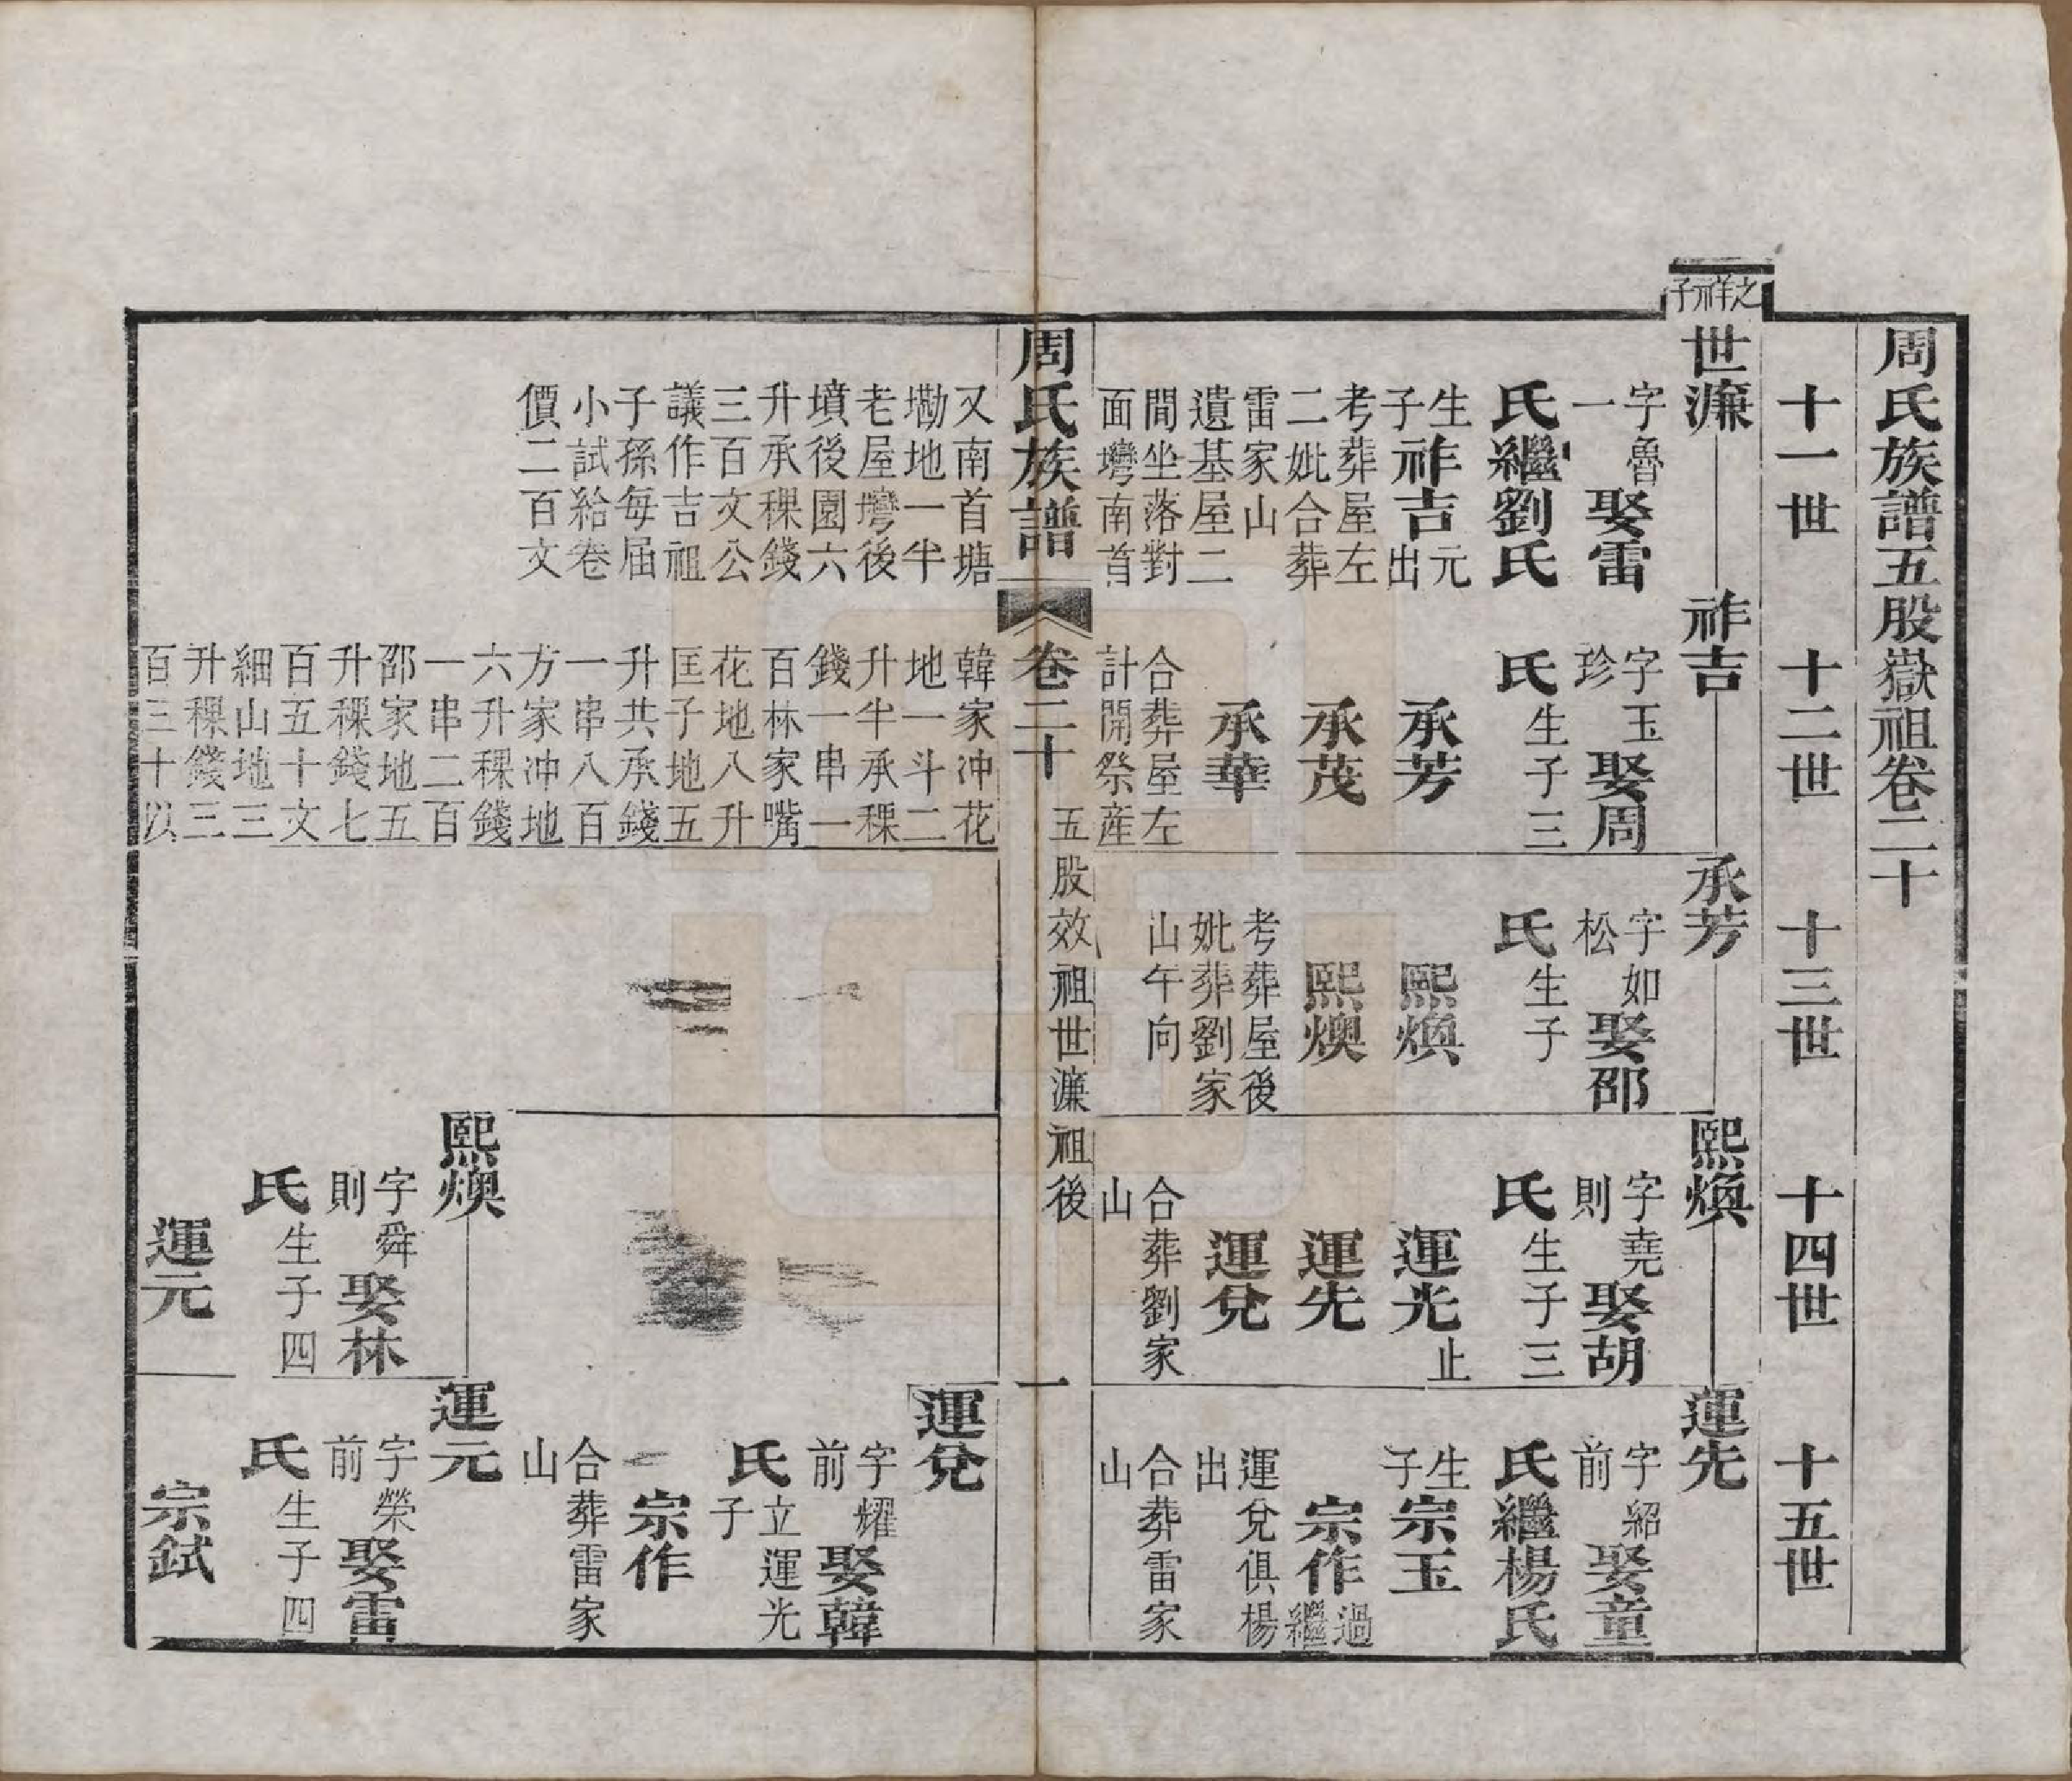 周氏族譜五股嶽祖卷二十
十一世
十二世
十三世
十四世
十五世
之祥子
世濂
字魯一
娶雷氏繼劉氏
生子祚吉
元出
考葬屋左
二妣合葬
雷家山
遺基屋二
間坐落對
面塆南首
又南首塘
墈地一半
老屋塆後
墳後園六
升承稞錢
三百文公
議作吉祖
子孫每届
小試給卷
價二百文
祚吉
字玉珍
娶周氏
生子三
承芳
承茂
承華
合葬屋左
計開祭産
韓家冲花
地一斗二
升半承稞
錢一串一
百林家嘴
花地八升
匡子地五
升共承錢
一串八百
方家冲地
六升稞錢
一串二百
邵家地五
升稞錢七
百五十文
細山地三
升稞錢三
百三十以
承芳
字如松
娶邵氏
生子
熙煥
熙燠
考葬屋後
妣葬劉家
山午向
熙煥
字堯則
娶胡氏
生子三
運光止
運先
運兌
合葬劉家
山
熙燠
字舜則
娶林氏
生子四
運元
運先
字紹前
娶童氏繼楊氏
生子宗玉
宗作過繼
運兌俱楊
出
合葬雷家
山
運兌
字耀前
娶韓氏
立運光
子
宗作
合葬雷家
山
運元
字榮前
娶雷氏
生子四
宗鉽
周氏族譜
卷二十
五股效祖世濂祖後
一